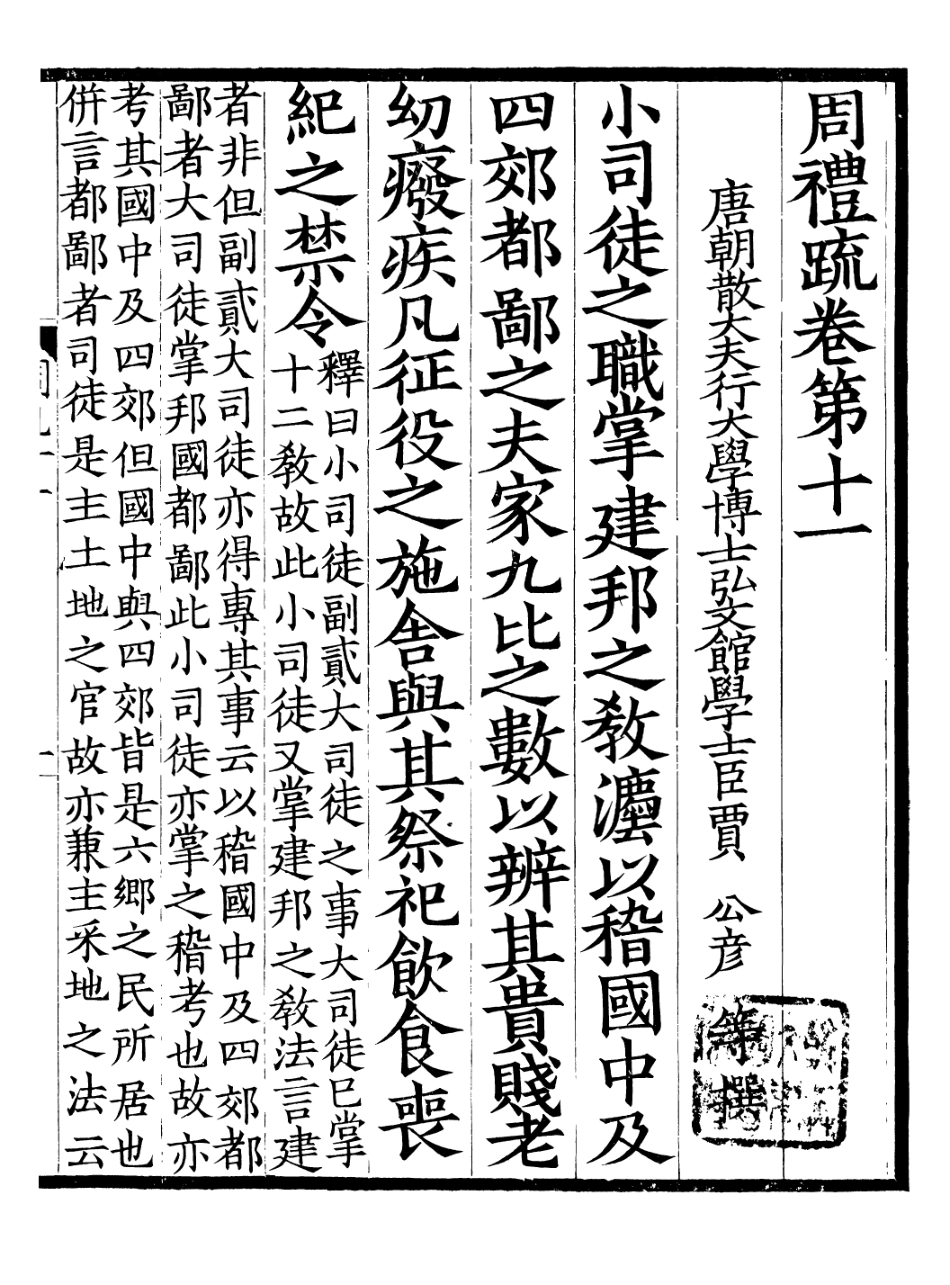 周禮疏卷第十一
唐朝散大夫行大學博士弘文館學士臣賈 公彦 等撰
小司徒之職掌建邦之敎灋以稽國中及
四郊都鄙之夫家九比之數以辨其貴賤老
幼癈疾凡征役之施舍與其祭祀飲食喪
紀之禁令
釋曰小司徒副貳大司徒之事大司徒已掌
十二敎故此小司徒又掌建邦之敎法言建
者非但副貳大司徒亦得專其事云以稽國中及四郊都
鄙者大司徒掌邦國都鄙此小司徒亦掌之稽考也故亦
考其國中及四郊但國中與四郊皆是六鄉之民所居也
併言都鄙者司徒是主土地之官故亦兼主采地之法云